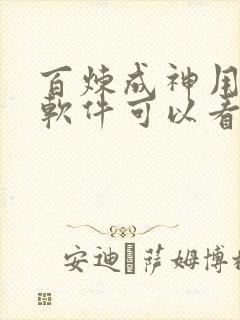 百炼成神用
軟件可以看
安迪 萨姆博